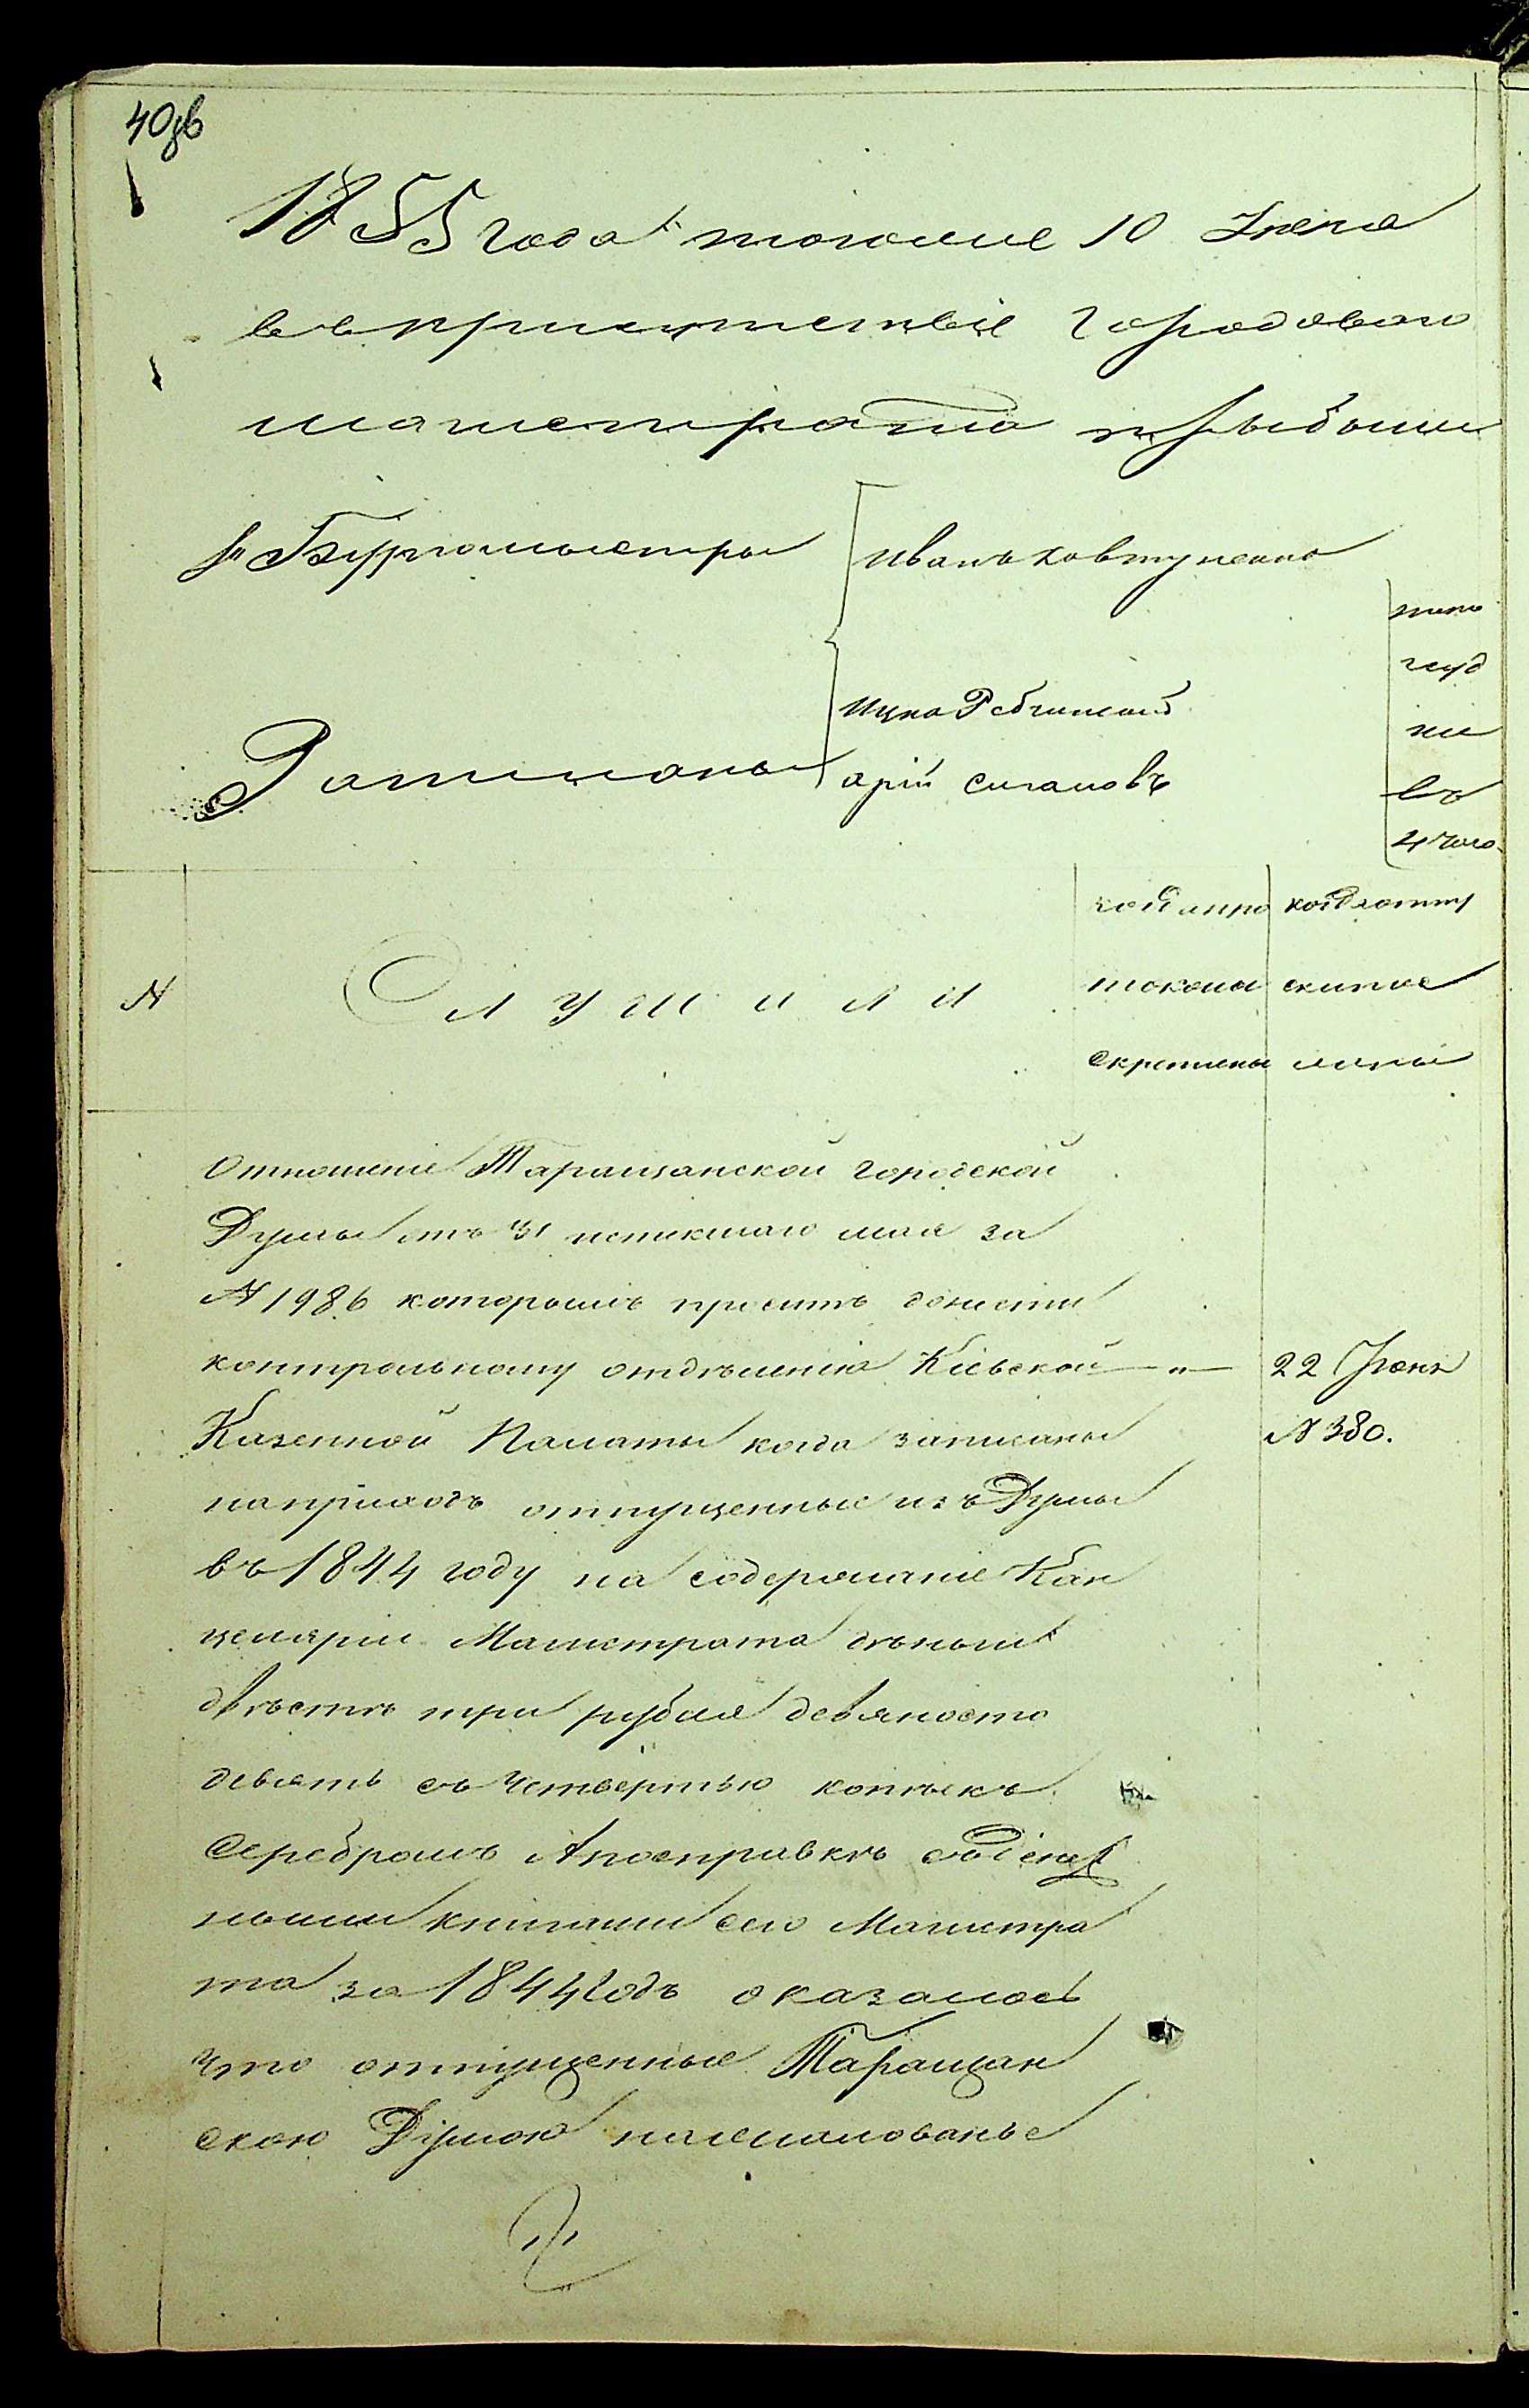 40об
1855 года июня 10 дня
въ присутствіе Городоваго
магистрата прибыли
Бургомистры
Иванъ Ковтуненко
Ицко Рабчинский
Ратманы
арій
въ
4 часа
N
Слушали
когда про
токолы
скреплены
когда отпу
скиные
Отношеніе Таращанской городской
Думы отъ 31 истекшаго мая за
N 1986 которымъ проситъ донести
контрольному отдѣленію Кіевской — " —
22 Іюня
N 380.
Казенной Палаты когда записаны
наприходъ отпущенные изъ Думы
въ 1844 году на содержаніе Кан
целяріи Магистрата деньги
двѣстѣ три рубля девяносто
девять съ четвёртью копѣекъ
Серебромъ Апосправкѣ
ными книгами сего Магистра
та за 1844 годъ оказалось
что отпущенные Таращан
скою Думою